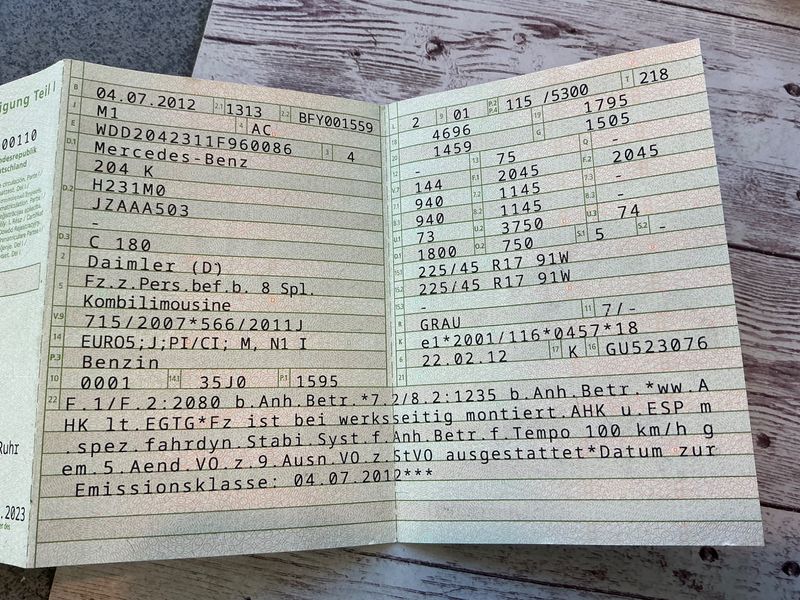 igung Teil I
00110
ndesrepublik
utschland
Ruhr
.2023
B 04.07.2012 2.1 1313 2.2 BFY001559
J M1 4 AC
E WDD2042311F960086 3 4
D.1 Mercedes-Benz
204 K
D.2 H231M0
JZAAA503
-
D.3 C 180
2 Daimler (D)
5 Fz.z.Pers.bef.b. 8 Spl.
Kombilimousine
V.9 715/2007*566/2011J
14 EURO5;J;PI/CI; M, N1 I
P.3 Benzin
10 0001 14.1 35J0 P.1 1595
L 2 9 01 P.2 P.4 115 /5300 T 218
18 4696 19 1795
20 1459 G 1505
12 - 13 75 Q -
V.7 144 F.1 2045 F.2 2045
7.1 940 7.2 1145 7.3 -
8.1 940 8.2 1145 8.3 -
U.1 73 U.2 3750 U.3 74
O.1 1800 O.2 750 S.1 5 S.2 -
15.1 225/45 R17 91W
15.2 225/45 R17 91W
15.3 -
R GRAU 11 7/-
K e1*2001/116*0457*18
6 22.02.12 17 K 16 GU523076
21
22 F.1/F.2:2080 b.Anh.Betr.*7.2/8.2:1235 b.Anh.Betr.*ww.A
HK lt.EGTG*Fz ist bei werksseitig montiert.AHK u.ESP m
.spez.fahrdyn.Stabi.Syst.f.Anh.Betr.f.Tempo 100 km/h g
em.5.Aend.VO.z.9.Ausn.VO.z.StVO ausgestattet*Datum zur
Emissionsklasse: 04.07.2012***